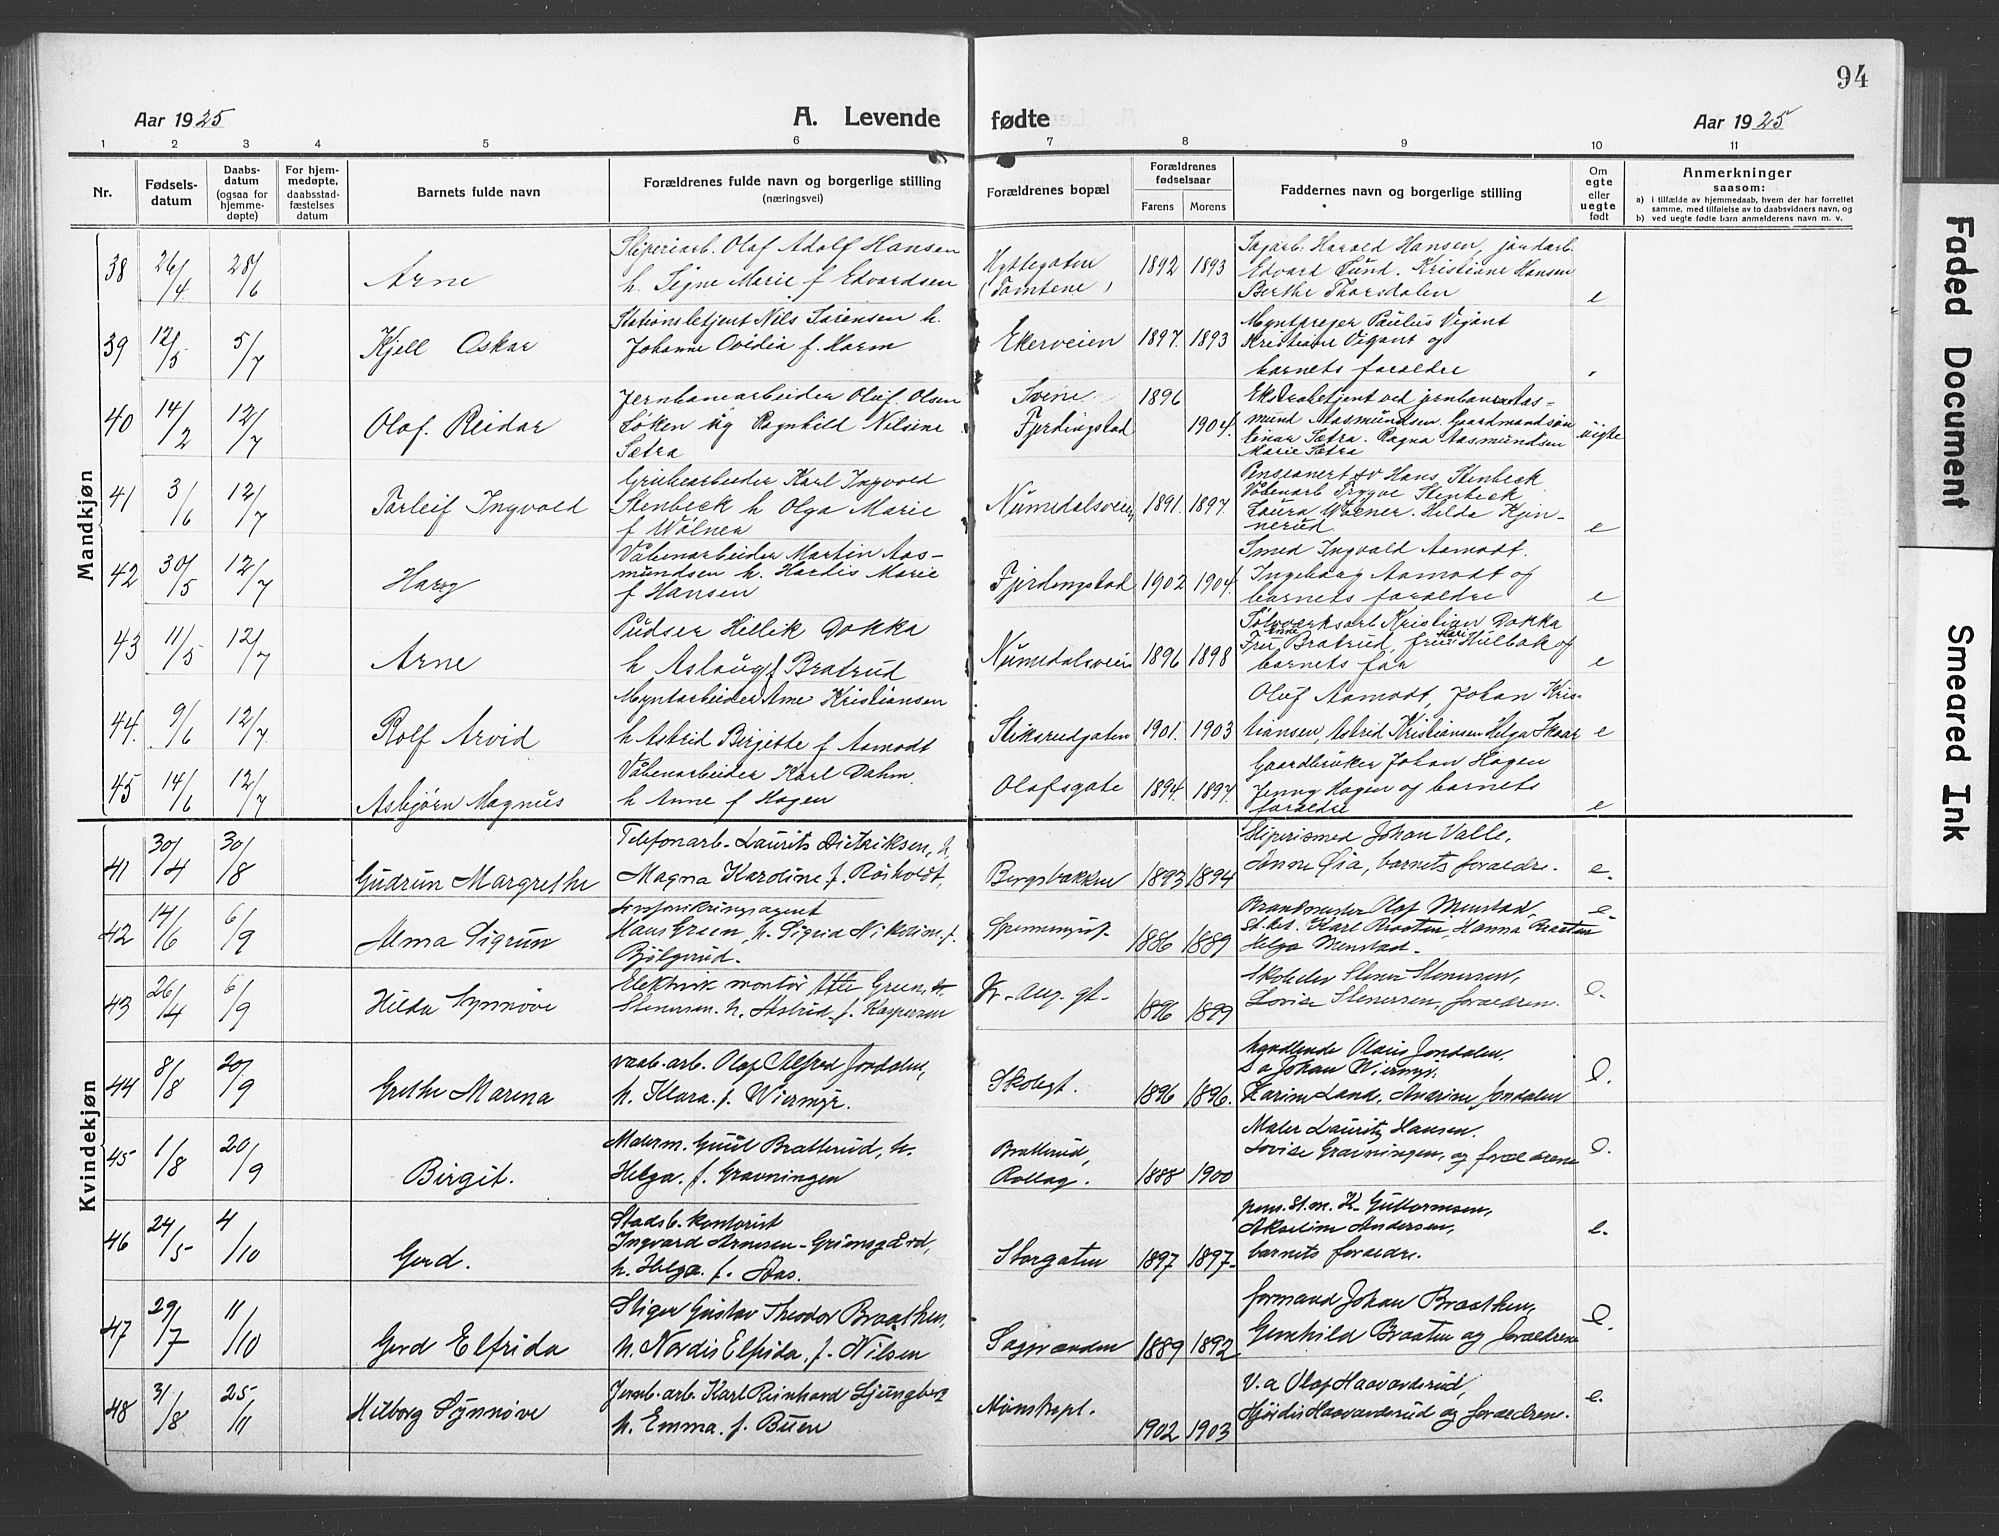 94
Aar 1925
A. Levende fødte
Aar 1925
1 2 3 4 5 6 7 8 9 10 11
Nr.
Fødsels-
datum
Daabs-
datum
(ogsaa for
hjemme-
døpte)
For hjem-
medøpte,
daabsstad-
fæstelses
datum
Barnets fulde navn
Forældrenes fulde navn og borgerlige stilling
(næringsvei)
Forældrenes bopæl
Forældrenes
fødselsaar
Farens Morens
Faddernes navn og borgerlige stilling
Om
egte
eller
uegte
født
Anmerkninger
saasom:
a) i tilfælde av hjemmedaab, hvem der har forrettet
samme, med tilføielse av to daabsvidners navn, og
b) ved uegte fødte barn anmelderens navn m. v.
Mandkjøn
38 26/4 28/6 Arne
Sliperiarb. Olaf Adolf Hansen
h. Signe Marie f Edvardsen
Hyttegaten
(Tomtene)
1892 1893
Sagarb. Harald Hansen, jordarb.
Edvard Lund. Kristiane Hansen
Berthe Thorsdalen
e
39 12/5 5/7 Kjell Oskar
Stationsbetjent Nils Sørensen h.
Johanne Ovidia f. Harm
Ekerveien
1897. 1893
Myntpreger Paulus Vigant
Kristiane Vigant og
barnets foraldre
40 14/2 12/7 Olaf Reidar
Jernbanearbeider Oluf Olsen
Løken og Ragnhild Nilsine
Sætra
Svene
Fjerdingstad
1896
1904.
Ekstrabetjent ved jernbanen Aas-
mund Aasmundsen. Gaardmandsøn
Einar Sætra. Ragna Aasmundsen
Marie Sætra
uegte
41 3/6 12/7 Torleif Ingvold
Grubearbeider Karl Ingvold
Stenbeck h Olga Marie
f Wølner
Numedalsveien
1891. 1897.
Pensionert sv Hans Stenbeck
Våbenarb Trygve Stenbeck
Laura Wølner. Hilda Kjen-
nerud
e
42 30/5 12/7 Harry
Våbenarbeider Martin Aas-
mundsen h. Hardis Marie
f Hansen
Fjerdingstad
1902 1904.
Smed Ingvald Aamodt.
Ingeborg Aamodt og
barnets foraldre
e
43 11/5 12/7 Arne
Pudser Hellik Dokka
h Aslaug f Bratrud
Numedalsveien
1896 1898
Sølvverksarb Kristian Dokka
Fru Anne Bratrud, fru Kari Hulbak og
barnets faa
e
44. 9/6 12/7 Rolf Arvid
Myntarbeider Arne Kristiansen
h Astrid Birgitte f Aamodt
Stiksrudgaten
1901. 1903
Oluf Aamodt, Johan Kris-
tiansen, Astrid Kristiansen Helga Skaar
e
45 14/6 12/7 Asbjørn Magnus
Våbenarbeider Karl Dahm.
h Anne f Hagen
Olafsgate
1894. 1897.
Gaardbruker Johan Hagen
Jenny Hagen og barnets
foraldre
e
Kvindekjøn
41 30/4 30/8 Gudrun Margrethe
Telefonarb. Laurits Didriksen, h,
Magna Karoline f. Røisholdt,
Bergsbakken
1893 1894
Sliperismed Johan Valle,
Anne Øia, barnets foraldre.
e.
42 14/6 6/9 Alma Sigrun
Hans Green, h. Sigrid Nikoline, f.
Bjølgerud.
1886 1889
Brandmester Olaf Menstad,
St. bet. Karl Braaten, Hanna Braaten
Helga Menstad.
e.
43 26/4 6/9 Hilda Synnøve
Elektrik montør Otto Green,
Stenersen. h. Astrid. f. Kaspersen
Kr. Aug. gt.
1896 1899
Skoelev Stener Stenersen,
Lovise Stenersen, foraldrene.
e.
44 8/8 20/9 Grethe Marena
vaab. arb. Olaf Alfred Jondalen,
h. Klara. f. Wiermyr.
Skolegt.
1896 1896.
handlende Olaus Jondalen.
s a Johan Wiermyr.
Karine Land, Andrine Jondalen
e.
45 1/8 20/9 Birgit.
Malerm. Guul Bratterud, h.
Helga. f. Gravningen
Bratterud,
Rollag.
1888 1900
Maler Lauritz Hansen.
Lovise Gravningen, og foraldrene
e.
46 24/5 4/10 Gerd.
Stadsb. kontorist
Ingvard Arnesen-Grimsgård,
h. Helga. f. Aas.
Storgaten
1897 1897.
pens. St.m. K. Guttormsen,
Akseline Andersen,
barnets foraldre.
e.
47 29/7 11/10 Gerd Elfrida
Stiger Gustav Theodor Braathen,
h. Nordis Elfrida. f. Nilsen
Sagranden
1889 1892
formand Johan Braathen,
Gunhild Braaten og foraldrene
e.
48 31/8 25/11 Hilborg Synnøve
Jernb. arb. Karl Reinhard Ljungberg
h. Emma. f. Buen
1902 1903
V. a Olaf Haavardsrud,
Hjørdis Haavardsrud og foraldrene.
e.
Faded Document
Smeared Ink